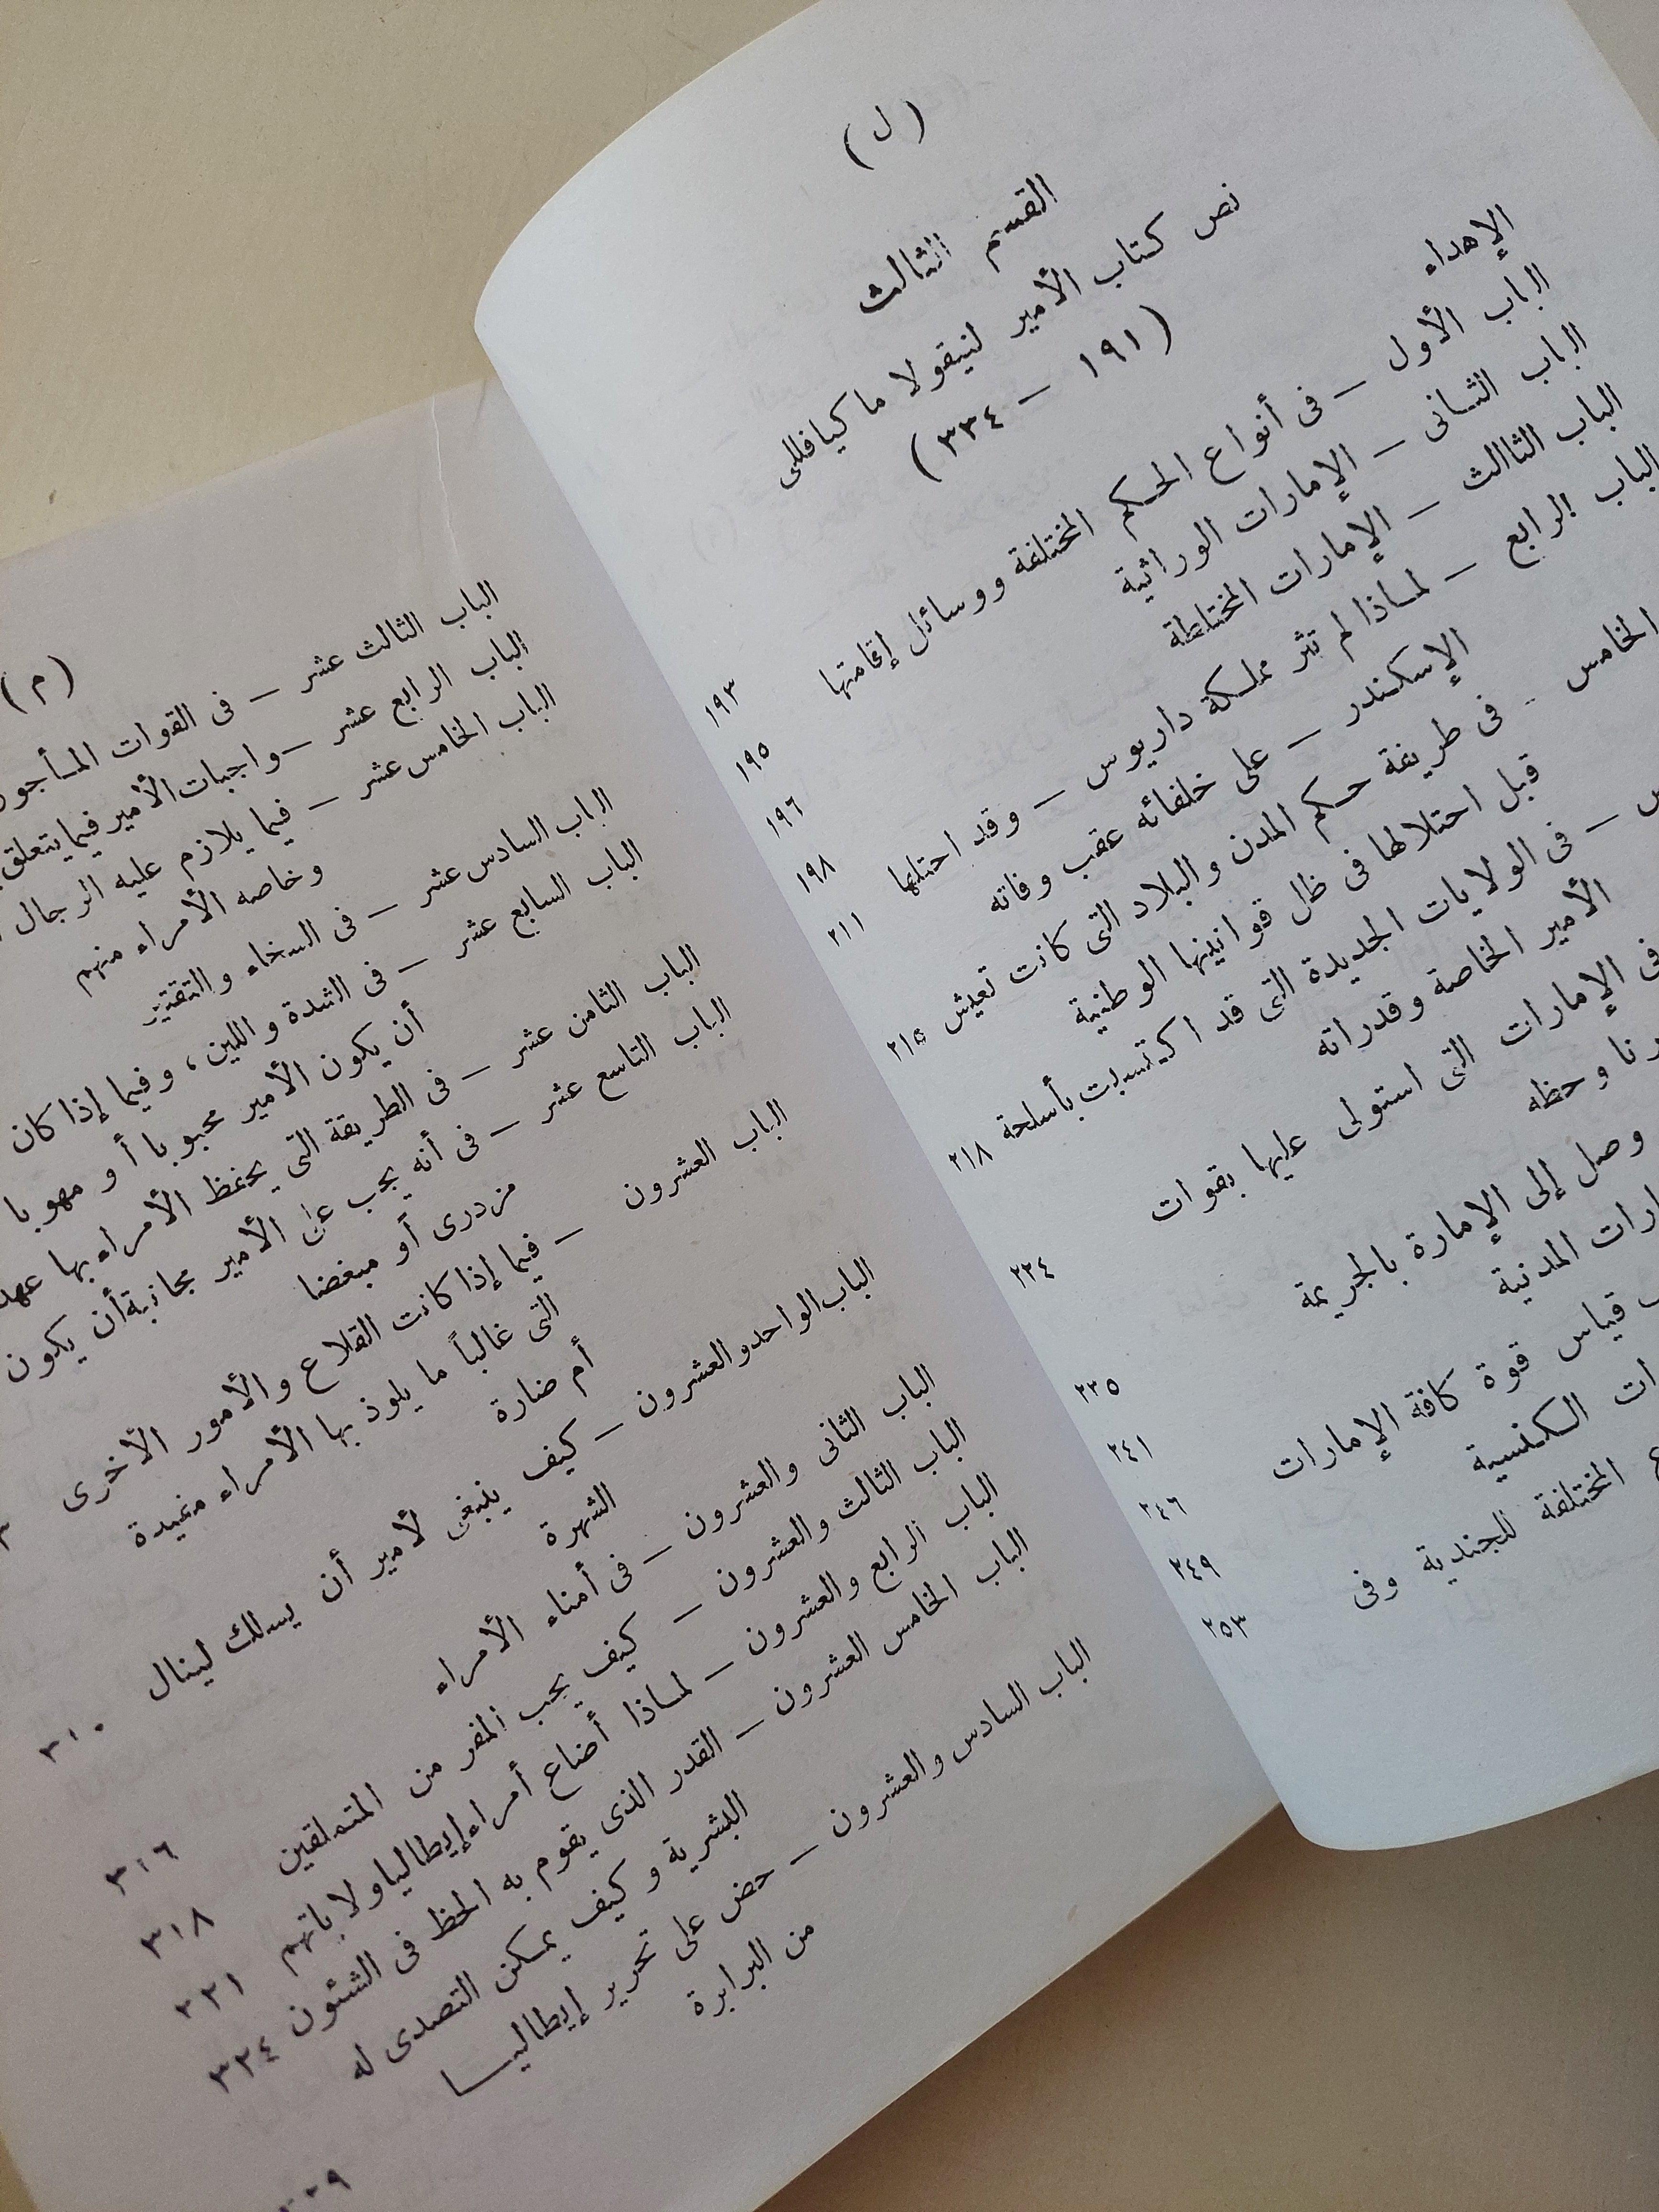 (ل)
القسم الثالث
نص كتاب الأمير لنيقولا ماكيافللى
(١٩١ — ٣٣٤)
الإهداء ١٩٣
الباب الأول — فى أنواع الحكم المختلفة ووسائل إقامتها ١٩٥
الباب الثانى — الإمارات الوراثية ١٩٦
الباب الثالث — الإمارات المختلطة ١٩٨
الباب الرابع — لماذا لم تثر مملكة داريوس — وقد احتلها ٢١١
الإسكندر — على خلفائه عقب وفاته
الخامس — فى طريقة حكم المدن والبلاد التى كانت تعيش ٢١٥
قبل احتلالها فى ظل قوانينها الوطنية
— فى الولايات الجديدة التى قد اكتسبت بأسلحة ٢١٨
الأمير الخاصة وقدراته
فى الإمارات التى استولى عليها بقوات ٢٢٤
وحظه
وصل إلى الإمارة بالجريمة ٢٣٥
المدنية ٢٤١
قياس قوة كافة الإمارات ٢٤٦
الكنسية ٢٤٩
المختلفة للجندية وفى ٢٥٣
(م)
الباب الثالث عشر — فى القوات
الباب الرابع عشر — واجبات الأمير فيما يتعلق
الباب الخامس عشر — فيما يلازم عليه الرجال
وخاصه الأمراء منهم
الباب السادس عشر — فى السخاء والتقتير
الباب السابع عشر — فى الشدة واللين ، وفيما إذا كان
أن يكون الأمير محبوبا أو مهوبا
الباب الثامن عشر — فى الطريقة التى يحفظ الأمراء بها
الباب التاسع عشر — فى أنه يجب على الأمير مجانبة أن يكون
مزدرى أو مبغضا
الباب العشرون — فيما إذا كانت القلاع والأمور الأخرى
التى غالباً ما يلوذ بها الأمراء مفيدة
أم ضارة
الباب الواحد والعشرون — كيف ينبغى لأمير أن يسلك لينال ٣١٠
الشهرة
الباب الثانى والعشرون — فى أمناء الأمراء ٣١٦
الباب الثالث والعشرون — كيف يجب المفر من المتملقين ٣١٨
الباب الرابع والعشرون — لماذا أضاع أمراء إيطاليا ولاياتهم ٣٢١
الباب الخامس العشرون — القدر الذى يقوم به الحظ فى الشئون ٣٢٤
البشرية وكيف يمكن التصدى له
الباب السادس والعشرون — حض على تحرير إيطاليا
من البرابرة